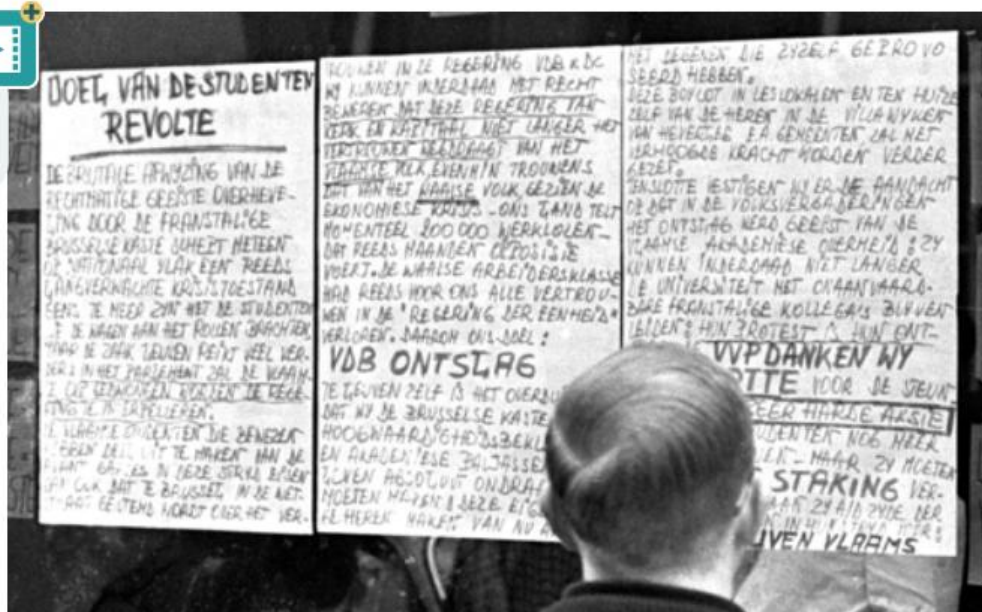 DOEL VAN DE STUDENTEN
REVOLTE
DE BRUTALE AFWYZING VAN DE
RECHTMATIGE GEEISTE OVERHEVE-
LING DOOR DE FRANSTALIGE
BRUSSELSE KASTE SCHEPT METEEN
OP NATIONAAL VLAK EEN REEDS
LANGVERWACHTE KRISISTOESTAND
EENS TE MEER ZYN HET DE STUDENTEN
DIE DE WAGEN AAN HET ROLLEN BRACHTEN
MAAR DE ZAAK LEUVEN REIKT VEL VER-
DER: IN HET PARLEMENT ZAL DE VLAAM-
DE REGE-
RING
DE VLAAMSE STUDENTEN DIE BEWEZEN
HEBBEN DEEL UIT TE MAKEN VAN DE
IN DEZE STRYD EISEN
DAN OOK DAT TE BRUSSEL IN DE WET-
STRAAT GESTEMD WORDT OVER HET VER-
TROUWEN IN DE REGERING VDB & DC
WY KUNNEN INDERDAAD MET RECHT
BEWEREN DAT DEZE REGERING VAN
KERK EN KAPITAAL NIET LANGER HET
VERTROUWEN WEGDRAAGT VAN HET
VLAAMSE VOLK EVENMIN TROUWENS
DAT VAN HET WAALSE VOLK GEZIEN DE
EKONOMIESE KRISIS - ONS LAND TELT
MOMENTEEL 200 000 WERKLOZEN -
DAT REEDS MAANDEN OPPOSISIE
VOERT. DE WAALSE ARBEIDERSKLASSE
HAD REEDS VOOR ONS ALLE VERTROU-
WEN IN DE "REGERING DER EENHEID"
VERLOREN. DAAROM ONS DOEL:
VDB ONTSLAG
TE LEUVEN ZELF IS HET OVERDU
DAT WY DE BRUSSELSE KASTE
HOOGWAARDIGHEIDSBEKL
EN AKADEMIESE BALJASSEN
ABSOLUUT ONDRA
MOETEN MAKEN DEZE
HEREN MAKEN VAN NU A
HET DEGENEN DIE ZYZELF GEPROVO
SEERD HEBBEN.
DEZE BOYKOT IN LESLOKALEN EN TEN HUIZE
ZELF VAN DE HEREN IN DE VILLAWYKEN
VAN HEVERLEE E.A. GEMEENTEN ZAL MET
VERHOOGDE KRACHT WORDEN VERDER
GEZET.
TENSLOTTE VESTIGEN WY ER DE AANDACHT
OP DAT IN DE VOLKSVERGADERINGEN
HET ONTSLAG WERD GEEIST VAN DE
VLAAMSE AKADEMIESE OVERHEID: ZY
KUNNEN INDERDAAD NIET LANGER
DE UNIVERSITEIT MET ONAANVAARD-
BARE FRANSTALIGE KOLLEGA'S BLYVEN
LEIDEN: HUN PROTEST IS HUN ONT-
VVP DANKEN WY
OTTE VOOR DE STEUN
ZEER HARDE AKSIE
UDENTEN NOG MEER
- MAAR ZY MOETEN
STAKING VER-
ZY AAN ZYDE DER
IN HUN STRYD VOOR:
UVEN VLAAMS